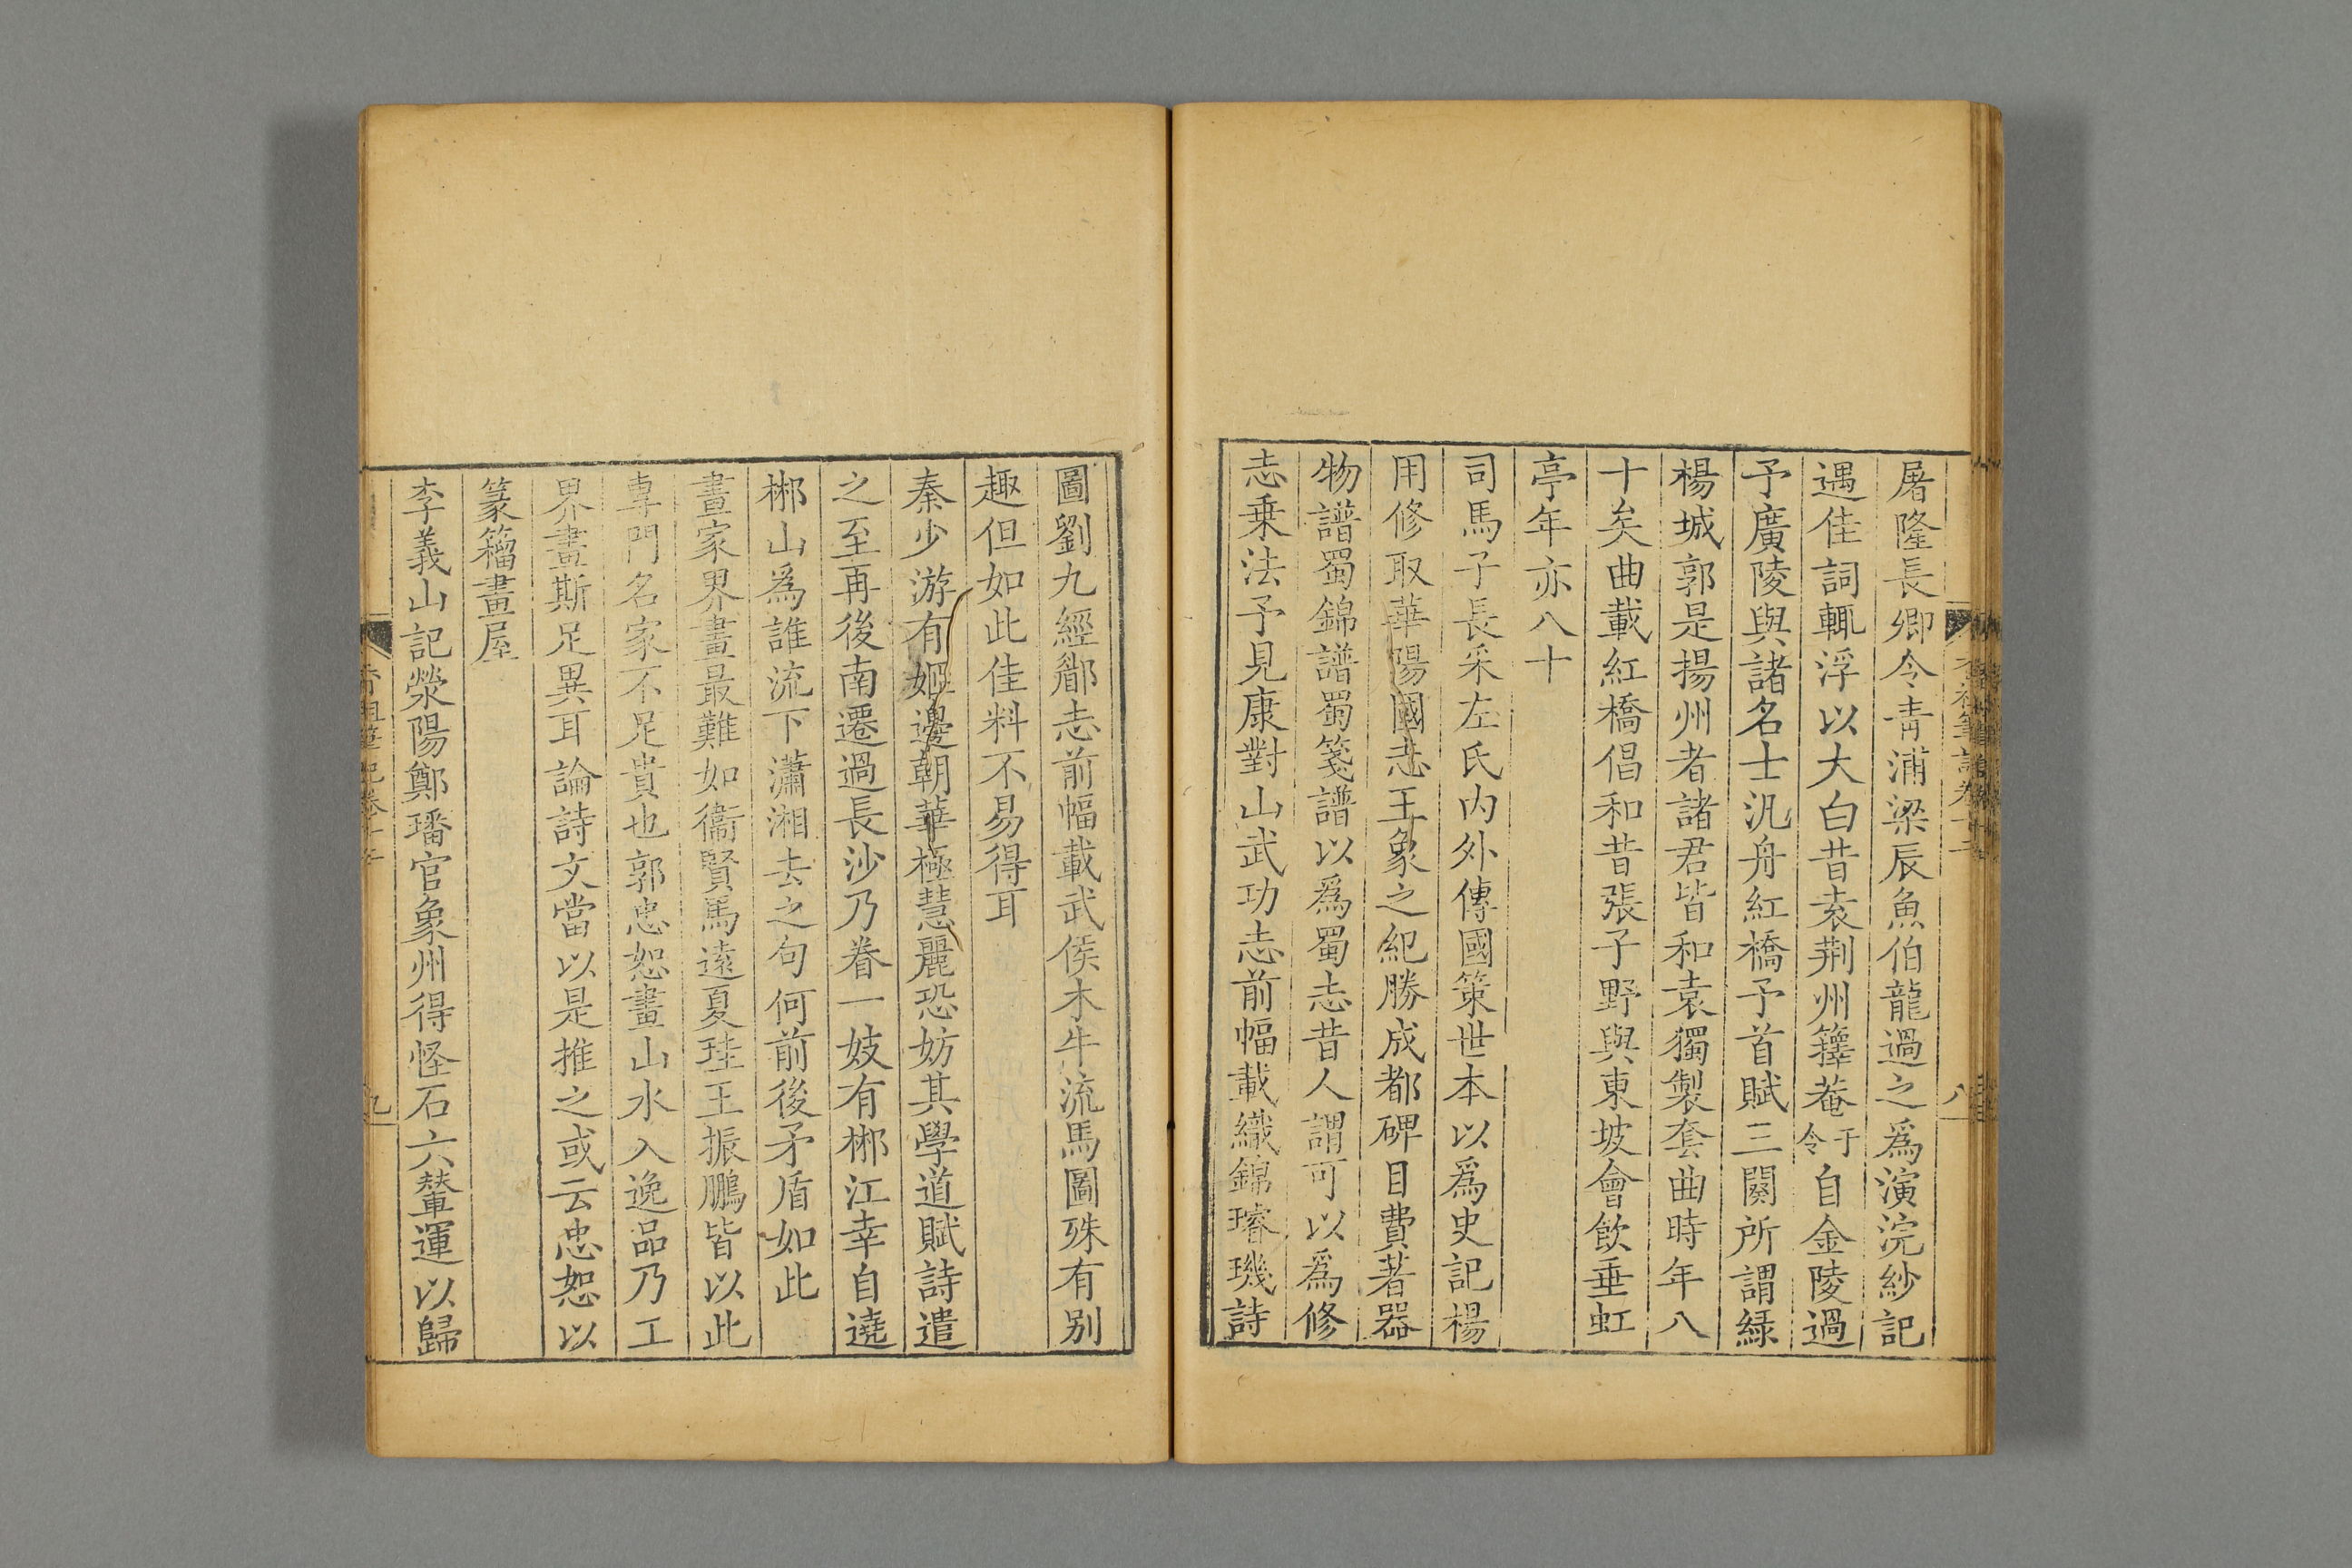 屠隆長卿令青浦梁辰魚伯龍過之爲演浣紗記
遇佳詞輒浮以大白昔袁荆州籜菴于令自金陵過
予廣陵與諸名士汎舟紅橋予首賦三闋所謂緑
楊城郭是揚州者諸君皆和袁獨製套曲時年八
十矣曲載紅橋倡和昔張子野與東坡會飲垂虹
亭年亦八十
司馬子長采左氏内外傳國策世本以爲史記楊
用修取華陽國志王象之紀勝成都碑目費著器
物譜蜀錦譜蜀箋譜以爲蜀志昔人謂可以爲修
志乗法予見康對山武功志前幅載織錦璿璣詩
圖劉九經郿志前幅載武侯木牛流馬圖殊有别
趣但如此佳料不易得耳
秦少游有姬邊朝華極慧麗恐妨其學道賦詩遣
之至再後南遷過長沙乃眷一妓有郴江幸自遶
郴山爲誰流下瀟湘去之句何前後矛盾如此
畫家界畫最難如衞賢馬遠夏珪王振鵬皆以此
專門名家不足貴也郭忠恕畫山水入逸品乃工
界畫斯足異耳論詩文當以是推之或云忠恕以
篆籀畫屋
李義山記滎陽鄭璠官象州得怪石六輦運以歸
香祖筆記卷十二
九
香祖筆記卷十二
八